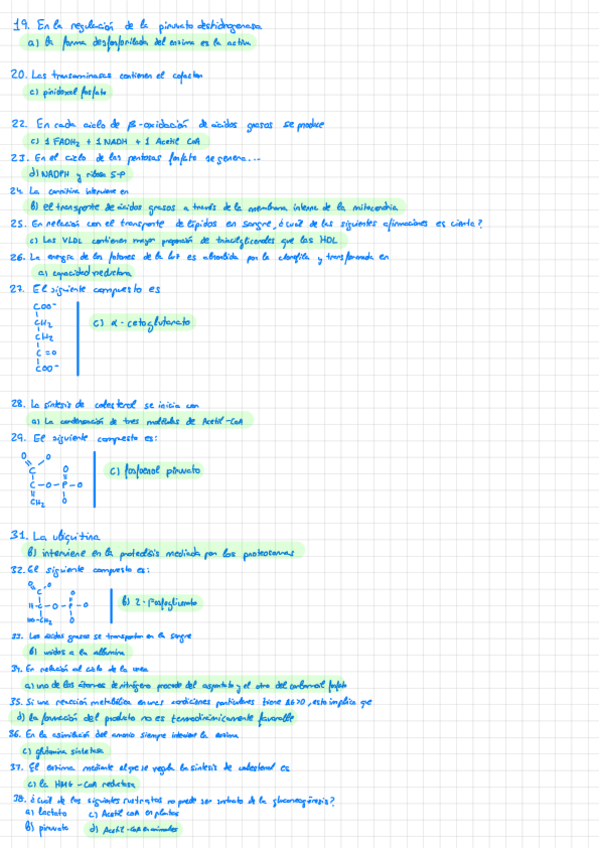 19. En la regulación de la piruvato deshidrogenasa
a) la forma desfosforilada del enzima es la activa
20. Las transaminasas contienen el cofactor
c) piridoxal fosfato
22. En cada ciclo de β-oxidación de ácidos grasos se produce
c) 1 FADH2 + 1 NADH + 1 Acetil CoA
23. En el ciclo de las pentosas fosfato se genera...
d) NADPH y ribosa 5-P
24. La carnitina interviene en
b) el transporte de ácidos grasos a través de la membrana interna de la mitocondria
25. En relación con el transporte de lípidos en sangre, ¿cuál de las siguientes afirmaciones es cierta?
c) Las VLDL contienen mayor proporción de triacilgliceroles que las HDL
26. La energía de los fotones de la luz es absorbida por la clorofila y transformada en
a) capacidad reductora
27. El siguiente compuesto es
COO-
CH2
c) α-cetoglutarato
CH2
C=O
COO-
28. La síntesis de colesterol se inicia con
a) La condensación de tres moléculas de Acetil-CoA
29. El siguiente compuesto es:
O O
C O
c) fosfoenol piruvato
C-O-P-O
CH2 O
31. La ubiquitina
b) interviene en la proteolisis mediada por los proteosomas
32. El siguiente compuesto es:
O O
C O
H-C-O-P-O
b) 2-fosfoglicerato
HO-CH2 O
33. Los ácidos grasos se transportan en la sangre
b) unidos a la albúmina
34. En relación al ciclo de la urea
a) uno de los átomos de nitrógeno procede del aspartato y el otro del carbamoil fosfato
35. Si una reacción metabólica en unas condiciones particulares tiene ΔG>0, esto implica que
d) la formación del producto no es termodinámicamente favorable
36. En la asimilación del amonio siempre interviene la enzima
c) glutamina sintetasa
37. El enzima mediante el que se regula la síntesis de colesterol es
c) la HMG-CoA reductasa
38. ¿Cuál de los siguientes sustratos no puede ser sustrato de la gluconeogénesis?
a) lactato c) Acetil CoA en plantas
b) piruvato d) Acetil-CoA en animales